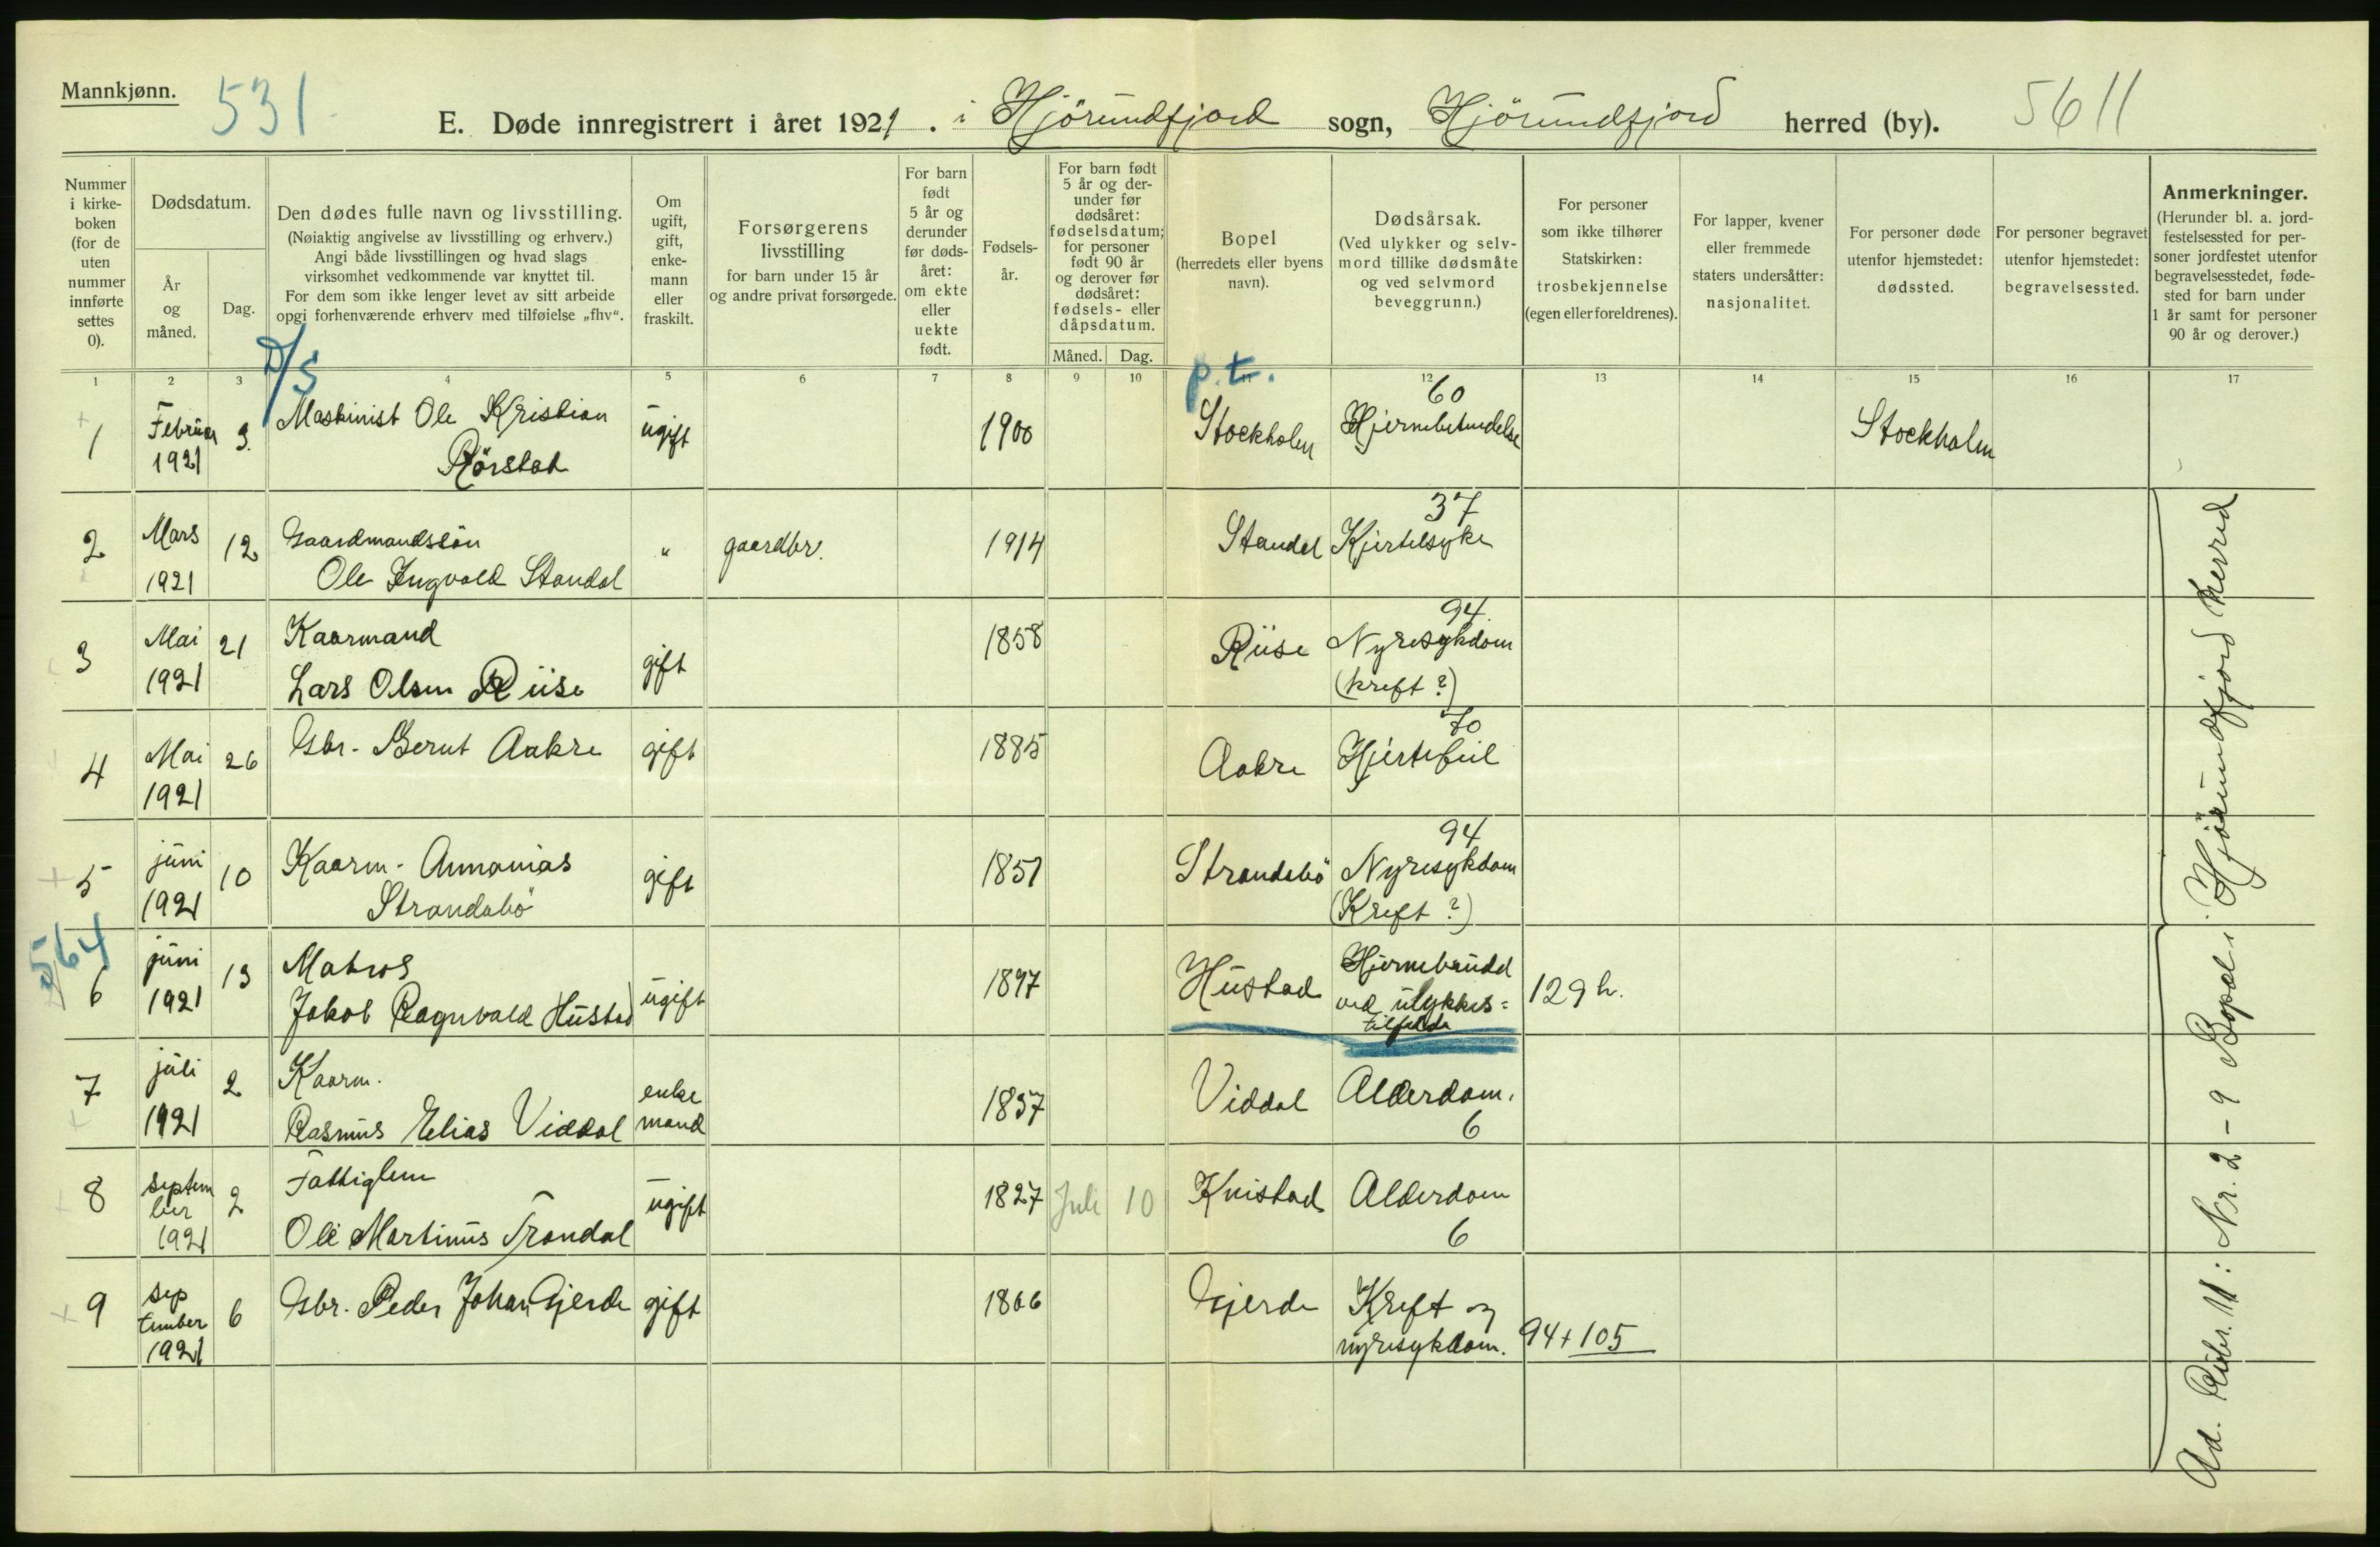 Mannkjønn.
531
E. Døde innregistrert i året 1921. i Hjørundfjord sogn, Hjørundfjord herred (by).
5611
Nummer i kirkeboken (for de uten nummer innførte settes 0).
Dødsdatum.
År og måned.
Dag.
Den dødes fulle navn og livsstilling.
(Nøiaktig angivelse av livsstilling og erhverv.)
Angi både livsstillingen og hvad slags
virksomhet vedkommende var knyttet til.
For dem som ikke lenger levet av sitt arbeide
opgi forhenværende erhverv med tilføielse „fhv“.
Om ugift, gift, enkemann eller fraskilt.
Forsørgerens livsstilling
for barn under 15 år
og andre privat forsørgede.
For barn født 5 år og derunder før dødsåret: om ekte eller uekte født.
Fødselsår.
For barn født 5 år og derunder før dødsåret: fødselsdatum; for personer født 90 år og derover før dødsåret: fødsels- eller dåpsdatum.
Måned. Dag.
Bopel
(herredets eller byens navn).
Dødsårsak.
(Ved ulykker og selvmord tillike dødsmåte og ved selvmord beveggrunn.)
For personer som ikke tilhører Statskirken: trosbekjennelse (egen eller foreldrenes).
For lapper, kvener eller fremmede staters undersåtter: nasjonalitet.
For personer døde utenfor hjemstedet: dødssted.
For personer begravet utenfor hjemstedet: begravelsessted.
Anmerkninger.
(Herunder bl. a. jordfestelsessted for personer jordfestet utenfor begravelsesstedet, fødested for barn under 1 år samt for personer 90 år og derover.)
1 2 3 4 5 6 7 8 9 10 11 12 13 14 15 16 17
D/S
p.t.
60
1 Februar 1921 3. Maskinist Ole Kristian Rörstad ugift 1900 Stockholm Hjernebetændelse Stockholm
37
2 Mars 1921 12 Gaardmandssön Ole Ingvald Standal " gaardbr. 1914 Standal Kjertelsyke
94
3 Mai 1921 21 Kaarmand Lars Olsen Riise gift 1858 Riise Nyresykdom (kreft ?)
70
4 Mai 1921 26 Gbr. Bernt Aakre gift 1885 Aakre Hjertefeil
94
5 juni 1921 10 Kaarm. Annanias Strandabö gift 1851 Strandabö Nyresykdom (Kreft ?)
564
6 juni 1921 13 Matros Jakob Ragnvald Hustad ugift 1897 Hustad Hjernebrudd ved ulykkes=tilfelde 129 h.
7 juli 1921 2 Kaarm. Rasmus Elias Viddal enkemand 1837 Viddal Alderdom. 6
8 september 1921 2 Fattiglem Ole Martinus Trandal ugift 1827 Juli 10 Knistad Alderdom 6
9 september 1921 6 Gbr. Peder Johan Gjerde gift 1866 Gjerde Kreft og nyresykdom. 94 + 105
Ad. Rubr. 11: Nr. 2 - 9 Bopel i Hjørundfjord herred